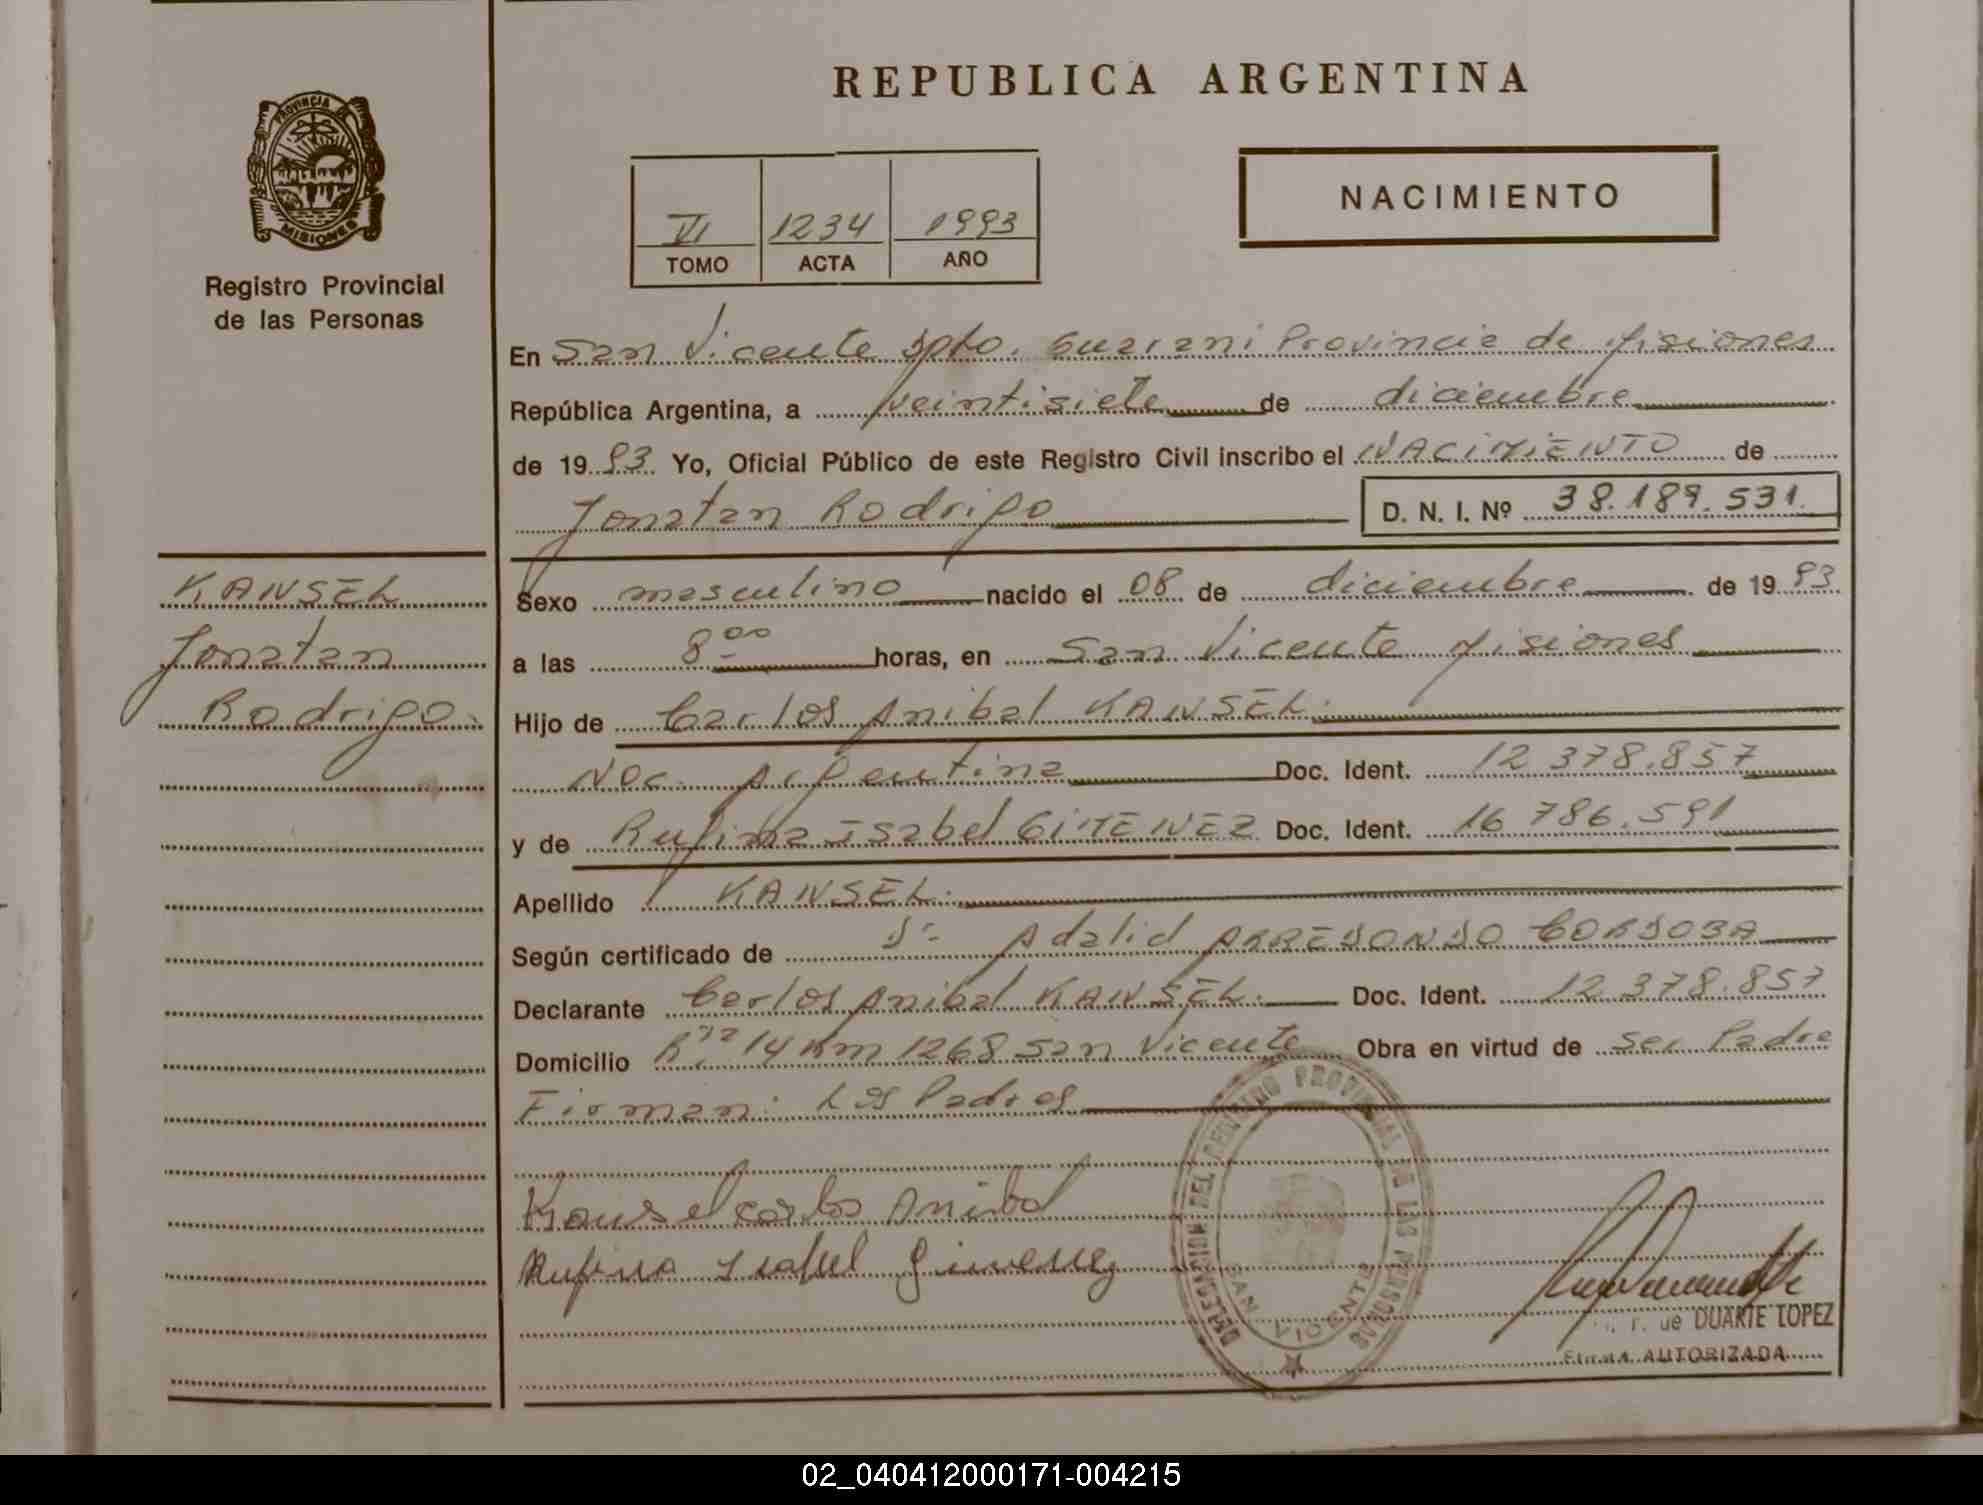 PROVINCIA DE
MISIONES
Registro Provincial
de las Personas
KANSEL
Jonatan
Rodrigo.
REPUBLICA ARGENTINA
VI 1234 1993
TOMO ACTA AÑO
NACIMIENTO
En San Vicente Dpto. Guarani Provincia de Misiones
República Argentina, a veintisiete de diciembre
de 1993 Yo, Oficial Público de este Registro Civil inscribo el NACIMIENTO de
Jonatan Rodrigo D. N. I. Nº 38.189.531.
Sexo masculino nacido el 08 de diciembre de 1993
a las 8 00 horas, en San Vicente Misiones
Hijo de Carlos Anibal KANSEL.
Nac. Argentina Doc. Ident. 12.378.857
y de Rufina Isabel GIMENEZ Doc. Ident. 16.786.591
Apellido KANSEL.
Según certificado de Dr. Adalid ARREDONDO CORDOBA
Declarante Carlos Anibal KANSEL. Doc. Ident. 12.378.857
Domicilio R. 14 Km 1268 San Vicente Obra en virtud de ser Padre
Firman: Los Padres
Kansel Carlos Anibal
Rufina Isabel Gimenez
DELEGACION DEL REGISTRO PROVINCIAL DE LAS PERSONAS
SAN VICENTE
de DUARTE LOPEZ
FIRMA AUTORIZADA
02_040412000171-004215